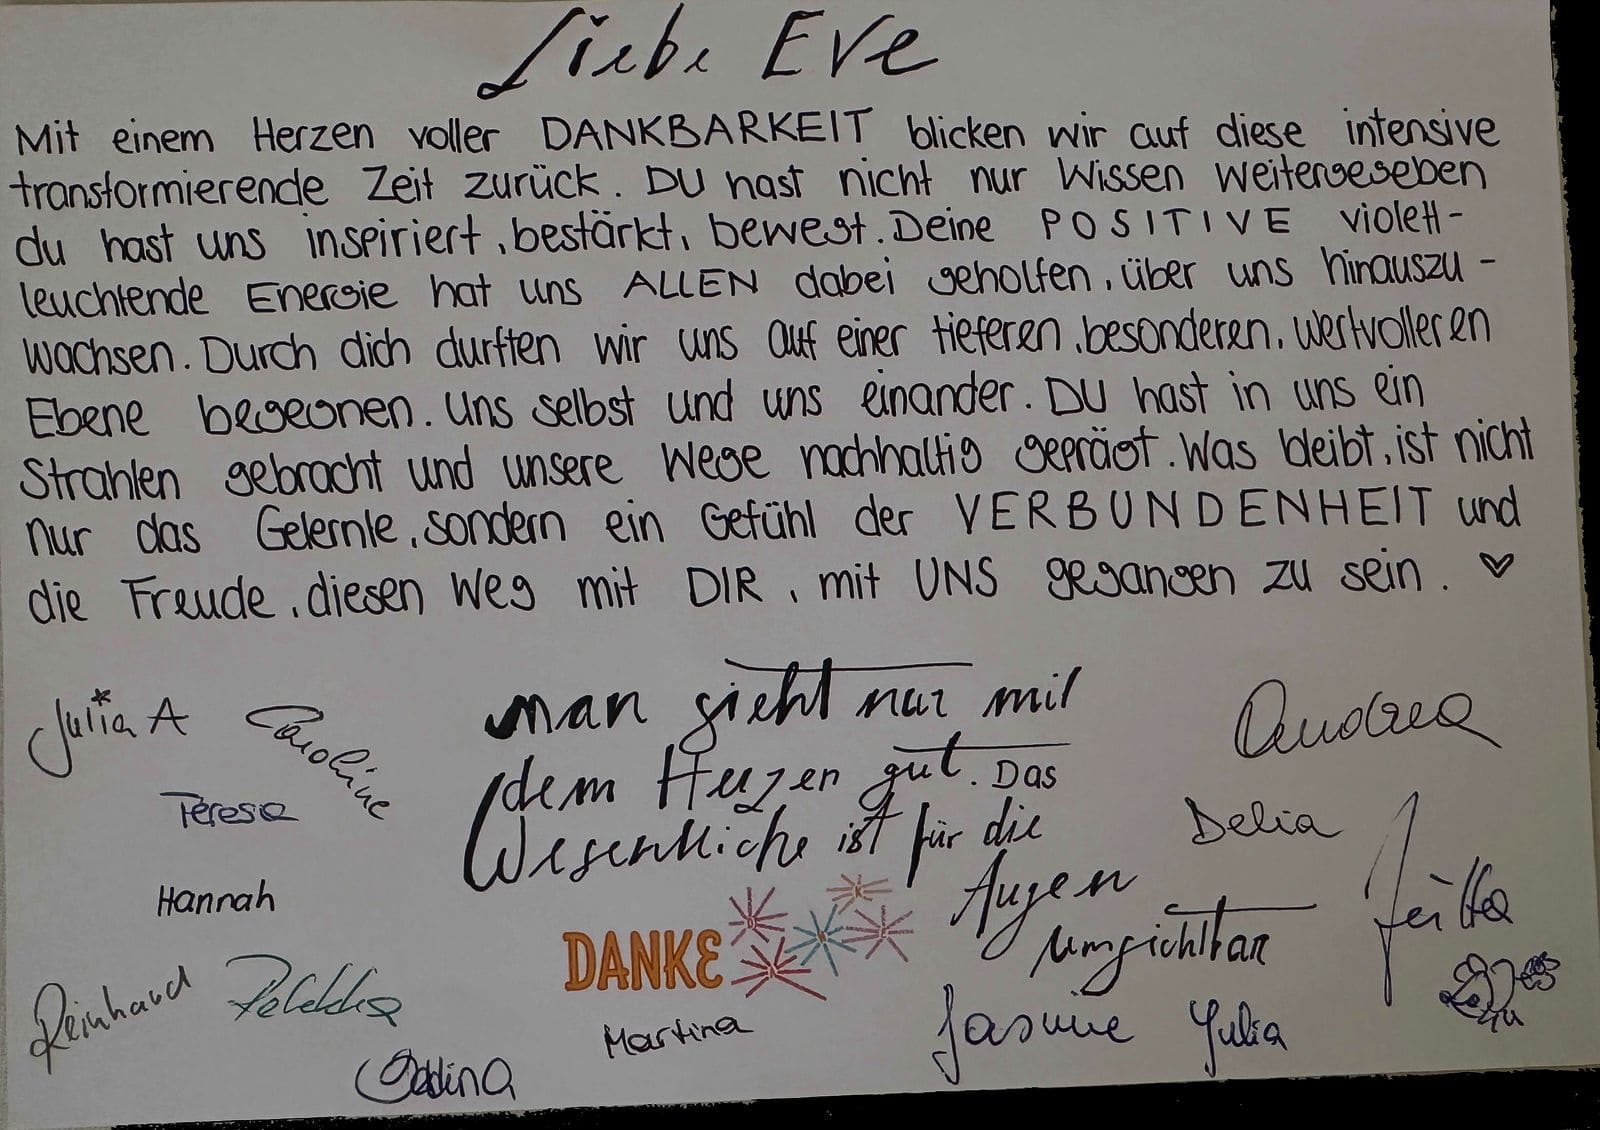 Liebe Eve
Mit einem Herzen voller DANKBARKEIT blicken wir auf diese intensive
transformierende Zeit zurück. DU hast nicht nur Wissen weitergegeben
du hast uns inspiriert, bestärkt, bewegt. Deine POSITIVE violett-
leuchtende Energie hat uns ALLEN dabei geholfen, über uns hinauszu-
wachsen. Durch dich durften wir uns auf einer tieferen, besonderen, wertvolleren
Ebene begegnen. Uns selbst und uns einander. DU hast in uns ein
Strahlen gebracht und unsere Wege nachhaltig geprägt. Was bleibt, ist nicht
nur das Gelernte, sondern ein Gefühl der VERBUNDENHEIT und
die Freude, diesen Weg mit DIR, mit UNS gegangen zu sein. ♡
man sieht nur mit
dem Herzen gut. Das
Wesentliche ist für die
Augen
unsichtbar
Julia A
Caroline
Teresa
Hannah
Reinhard
Martina
DANKE
Andrea
Delia
Jutta
Jasmine
Julia